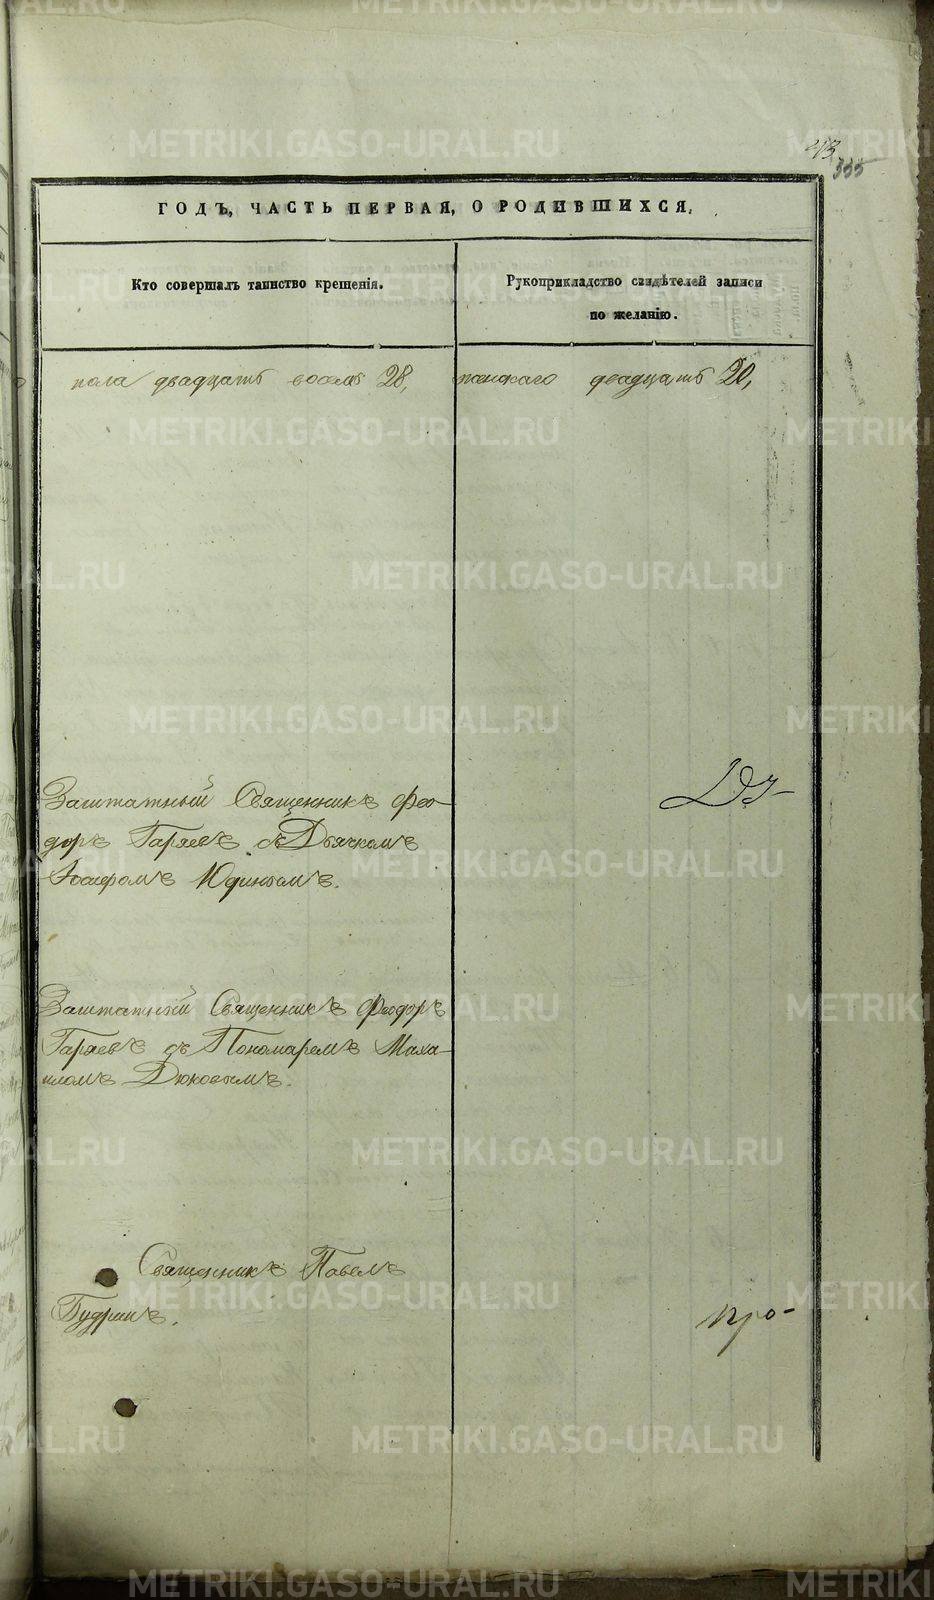 213
335
ГОДЪ, ЧАСТЬ ПЕРВАЯ, О РОДИВШИХСЯ.
Кто совершалъ таинство крещенія.
Рукоприкладство свидѣтелей записи
по желанію.
пола двадцать восемь 28, женскаго двадцать 20,
Заштатный Священникъ Фео-
доръ Гаряевъ съ Дьячкомъ
Іосифомъ Юдинымъ.
Заштатный Священникъ Феодоръ
Гаряевъ съ Пономаремъ Миха-
иломъ Дюковымъ.
Священникъ Павелъ
Будринъ.
про-
METRIKI.GASO-URAL.RU